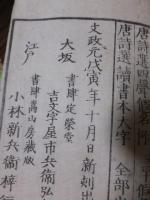 唐詩選四聲
唐詩選讀書本大字 全部
文政元戊寅年十月日新刻出
大坂 書肆定榮堂
吉文字屋市兵衞弘
江戸 書肆嵩山房藏版
小林新兵衞梓行